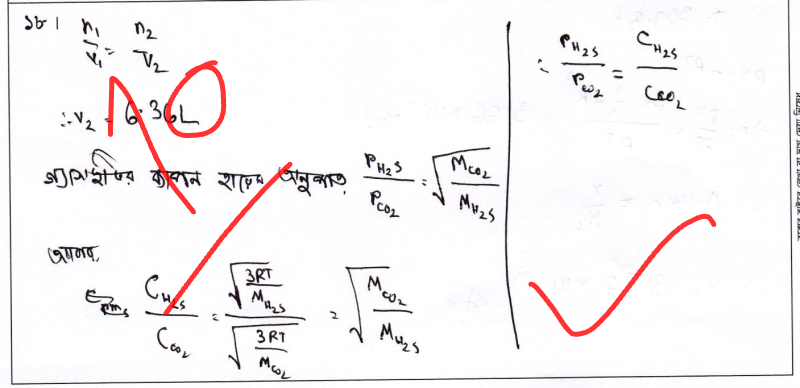 ১৮। n₁/V₁ = n₂/V₂
∴ V₂ = 6.36L
গ্যাস দুইটির ব্যাপন হারের অনুপাত, P_H₂S/P_CO₂ = √(M_CO₂/M_H₂S)
আবার,
C_H₂S/C_CO₂ = √(3RT/M_H₂S)/√(3RT/M_CO₂) = √(M_CO₂/M_H₂S)
∴ P_H₂S/P_CO₂ = C_H₂S/C_CO₂